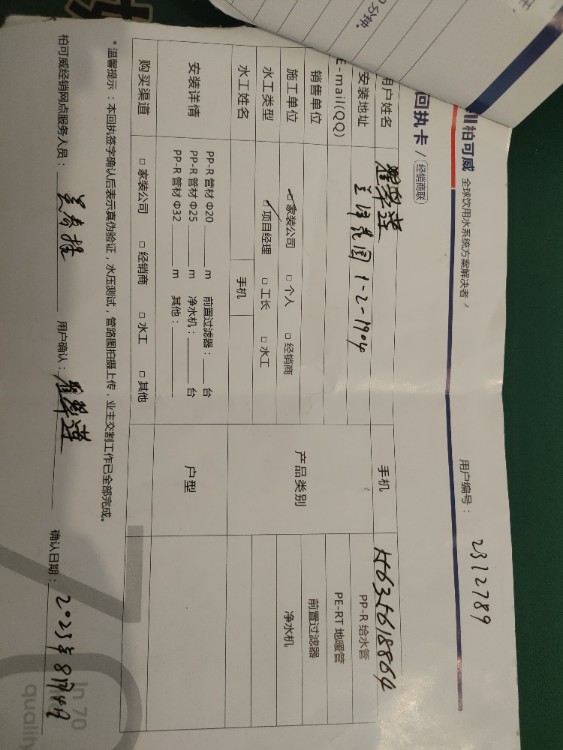 柏可威 全球饮用水系统方案解决者
回执卡 / 经销商联
用户编号： 2312789
户姓名 翠莲 手机
安装地址 兰泽苑 1-2-1904
E-mail(QQ)
销售单位
施工单位 ☑ 家装公司 □ 个人 □ 经销商
水工类型 ☑ 项目经理 □ 工长 □ 水工
水工姓名 手机
产品类别
PP-R 给水管
PE-RT 地暖管
前置过滤器
净水机
安装详情
PP-R 管材 Φ20 m 前置过滤器： 台
PP-R 管材 Φ25 m 净水机： 台
PP-R 管材 Φ32 m 其他：
户型
购买渠道 □ 家装公司 □ 经销商 □ 水工 □ 其他
*温馨提示：本回执签字确认后表示真伪验证，水压测试，管路图拍摄上传，业主交割工作已全部完成。
柏可威经销网点服务人员： 用户确认： 翠莲 确认日期： 2023年8月4日
In 70
quality